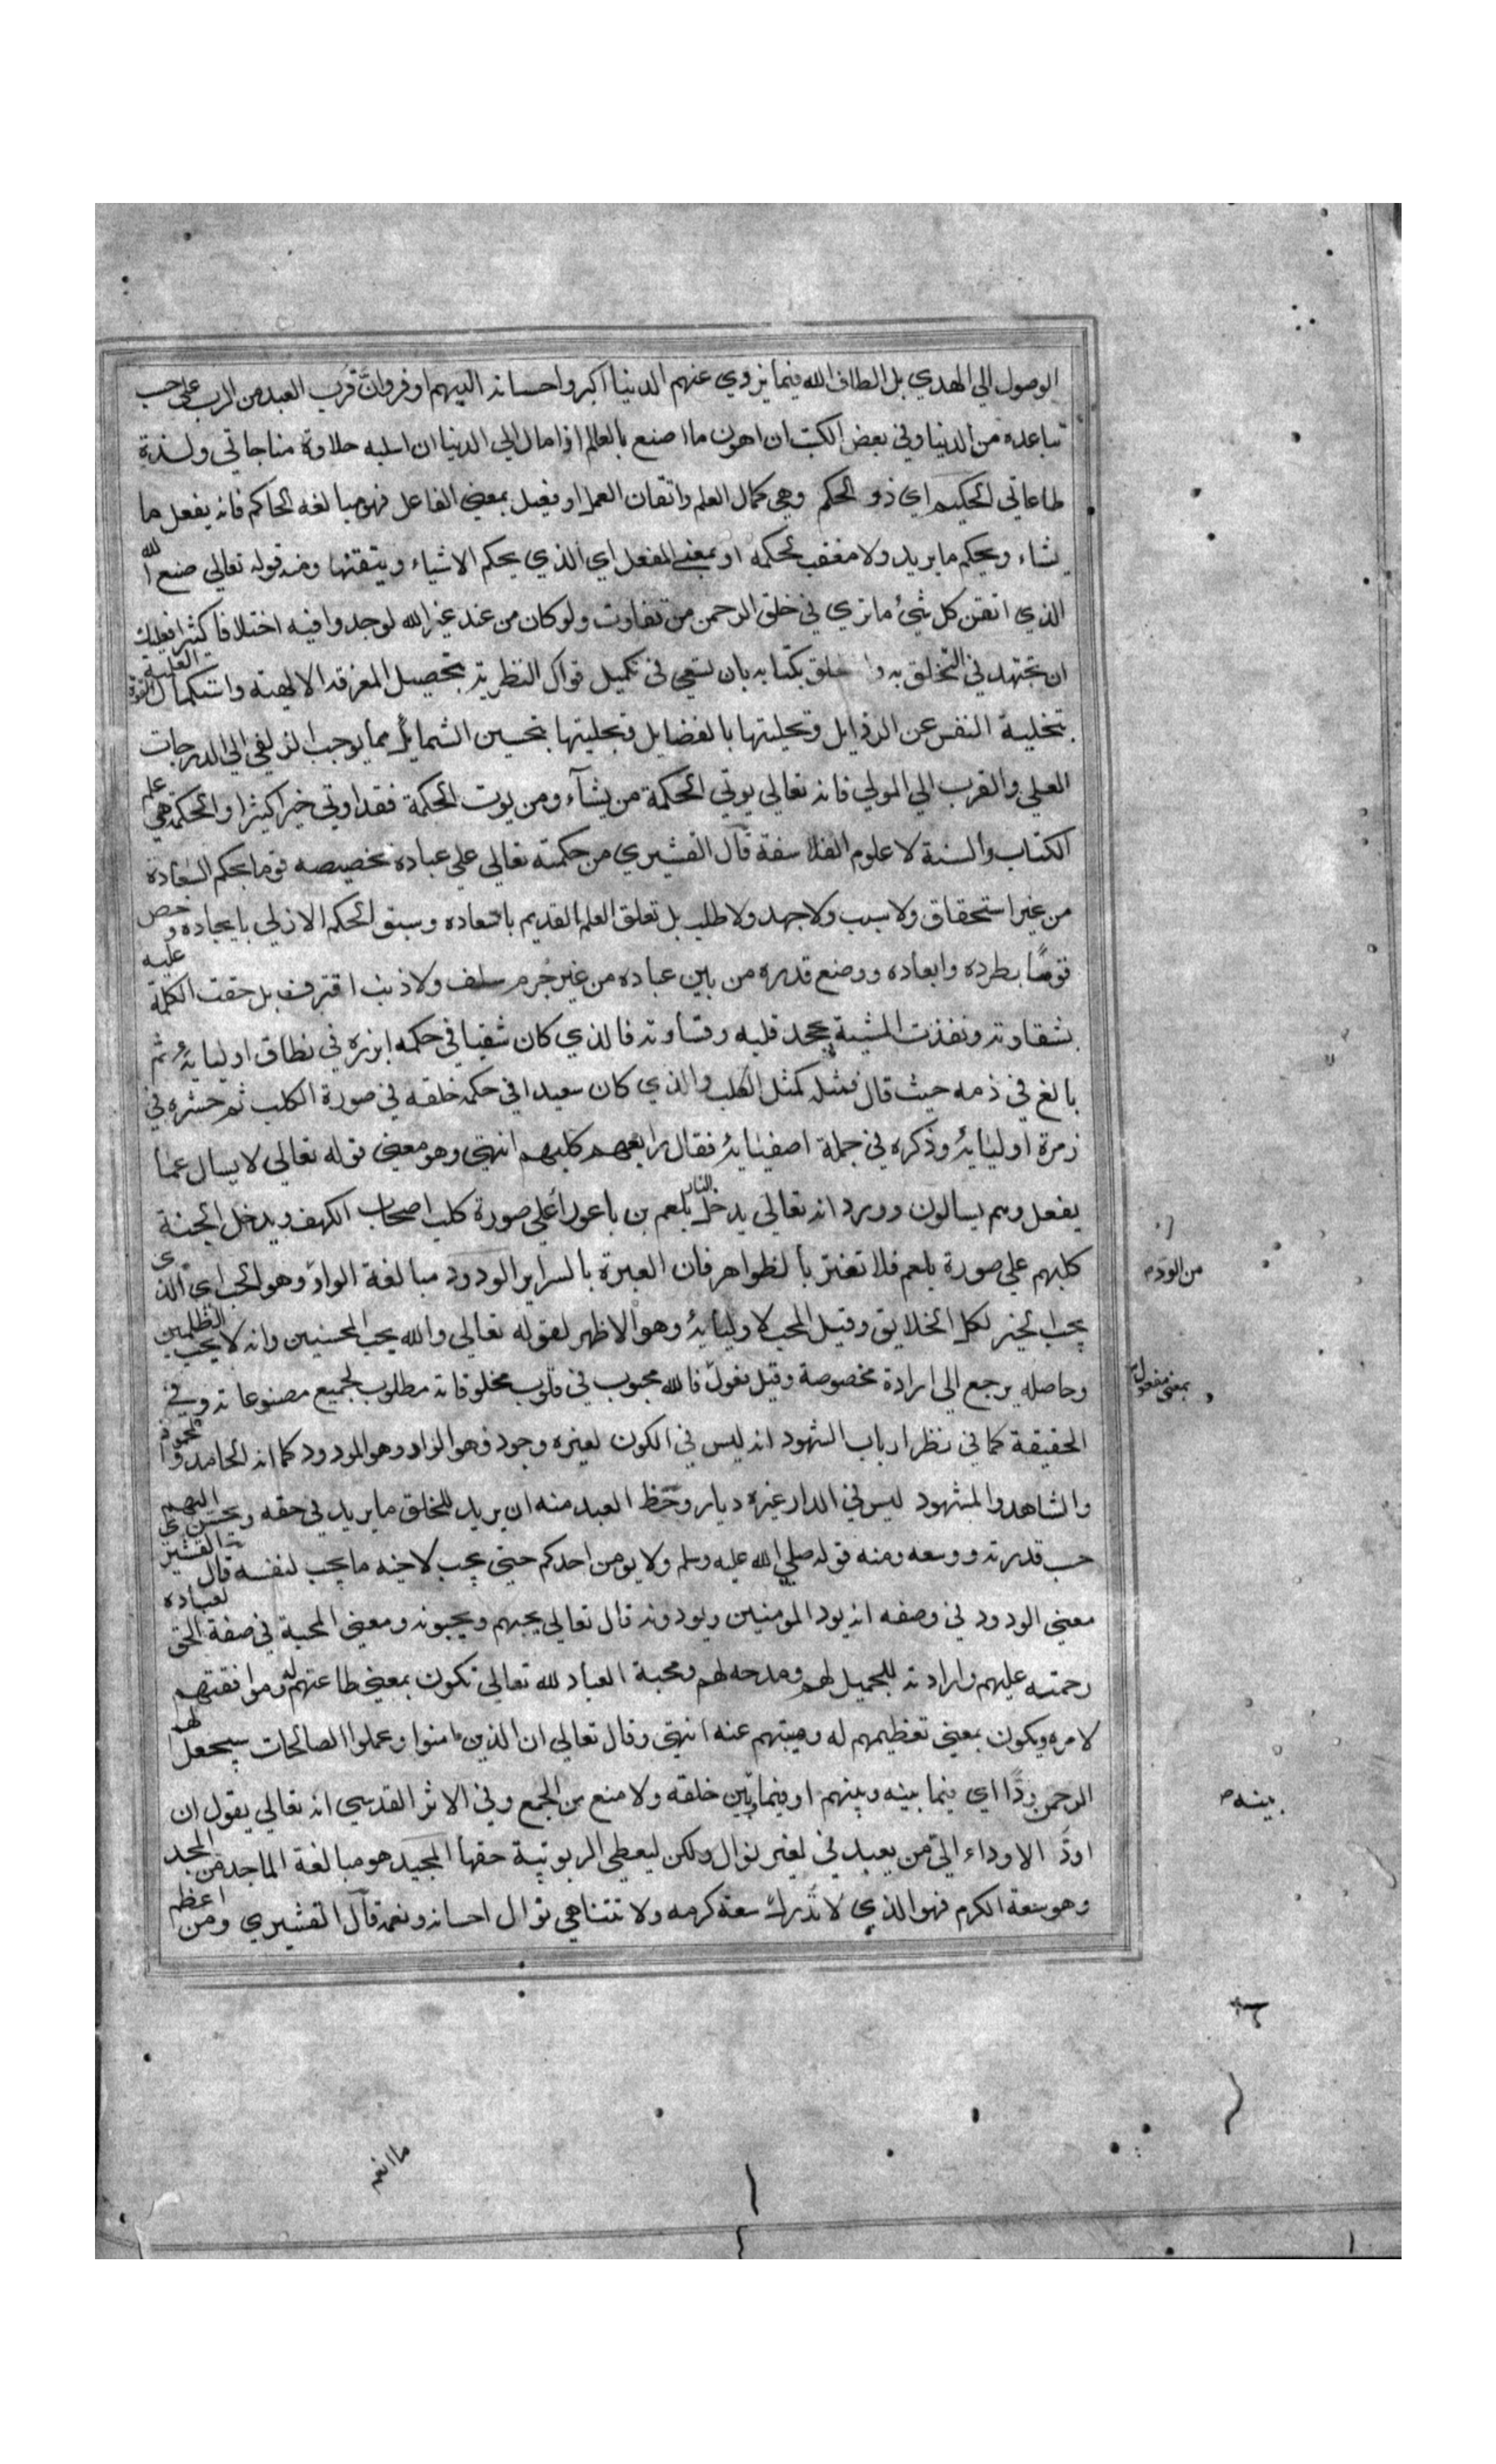 الوصول الي الهدي بل الطاف الله فيما يزوي عنهم الدنيا اكبر واحسانه اليهم اوفر وان قرب العبد من الرب علي حسب
تباعده من الدنيا وفي بعض الكتب ان اهون ما اصنع بالعالم اذا مال الي الدنيا ان اسلبه حلاوة مناجاتي ولذة
طاعاتي الحكيم اي ذو الحكم وهي كمال العلم واتقان العمل او فعيل بمعني الفاعل فهو مبالغة الحاكم فانه يفعل ما
يشاء ويحكم ما يريد ولا معقب لحكمه او بمعني المفعل اي الذي يحكم الاشياء ويتقنها ومنه قوله تعالي صنع الله
الذي اتقن كل شئ ما تري في خلق الرحمن من تفاوت ولو كان من عند غير الله لوجدوا فيه اختلافا كثيرا فعليك
ان تجتهد في التخلق به والتعلق بكتابه بان تسعي في تكميل قواك النظرية بتحصيل المعرفة الالهية واستكمال القوة العملية
بتخلية النفس عن الرذايل وتحليتها بالفضايل وتجليتها بتحسين الشمايل مما يوجب الزلفي الي الدرجات
العلي والقرب الي المولي فانه تعالي يوتي الحكمة من يشآء ومن يوت الحكمة فقد اوتي خيرا كثيرا والحكمة هي علم
الكتاب والسنة لا علوم الفلاسفة قال القشيري من حكمته تعالي علي عباده تخصيصه قوما بحكم السعادة
من غير استحقاق ولا سبب ولا جهد ولا طلب بل تعلق العلم القديم باسعاده وسبق الحكم الازلي بايجاده وخص
قومًا بطرده وابعاده ووضع قدره من بين عباده من غير جرم سلف ولا ذنب اقترف بل حقت الكلمة عليه
بشقاوته ونفذت المشية بجحد قلبه وقساوته فالذي كان شقيا في حكمه ابرزه في نطاق اوليايه ثم
بالغ في ذمه حيث قال فمثله كمثل الكلب والذي كان سعيدا في حكمه خلقه في صورة الكلب ثم حشره في
زمرة اوليايه وذكره في جملة اصفيايه فقال رابعهم كلبهم انتهي وهو معني قوله تعالي لا يسال عما
يفعل وهم يسالون وورد انه تعالي يدخل النار بلعم بن باعورا علي صورة كلب اصحاب الكهف ويدخل الجنة
كلبهم علي صورة بلعم فلا تغتر بالظواهر فان العبرة بالسراير الودود مبالغة الواد وهو الحب اي الذي
من الود
يحب الخير لكل الخلايق وقيل المحب لاوليايه وهو الاظهر لقوله تعالي والله يحب المحسنين وانه لا يحب الظلمين
وحاصله يرجع الي ارادة مخصوصة وقيل فعول فالله محبوب في قلوب مخلوقاته مطلوب لجميع مصنوعاته وفي
بمعني مفعول
الحقيقة كما في نظر ارباب الشهود انه ليس في الكون لغيره وجود فهو الواد وهو المودود كما انه الحامد والمحمود
والشاهد والمشهود ليس في الدار غيره ديار وحظ العبد منه ان يريد للخلق ما يريد في حقه ويحسن اليهم
حسب قدرته ووسعه ومنه قوله صلي الله عليه وسلم ولا يومن احدكم حتي يحب لاخيه ما يحب لنفسه قال القشيري
معني الودود في وصفه انه يود المومنين ويودونه قال تعالي يحبهم ويحبونه ومعني المحبة في صفة الحق لعباده
رحمته عليهم وارادته للجميل لهم ومدحه لهم ومحبة العباد لله تعالي تكون بمعني طاعتهم له وموافقتهم
لامره ويكون بمعني تعظيمهم له وهيبتهم عنه انتهي وقال تعالي ان الذين امنوا وعملوا الصالحات سيجعل لهم
الرحمن ودًا اي فيما بينه وبينهم او فيما بين خلقه ولا منع من الجمع وفي الاثر القدسي انه تعالي يقول ان
بينه
اودَّ الاوداء الي من يعبدني لغير نوال ولكن ليعطي الربوبية حقها المجيد هو مبالغة الماجد من المجد
وهو سعة الكرم فهو الذي لا تدرك سعة كرمه ولا تتناهي توال احسانه ونعمه قال القشيري ومن اعظم
ما انعم